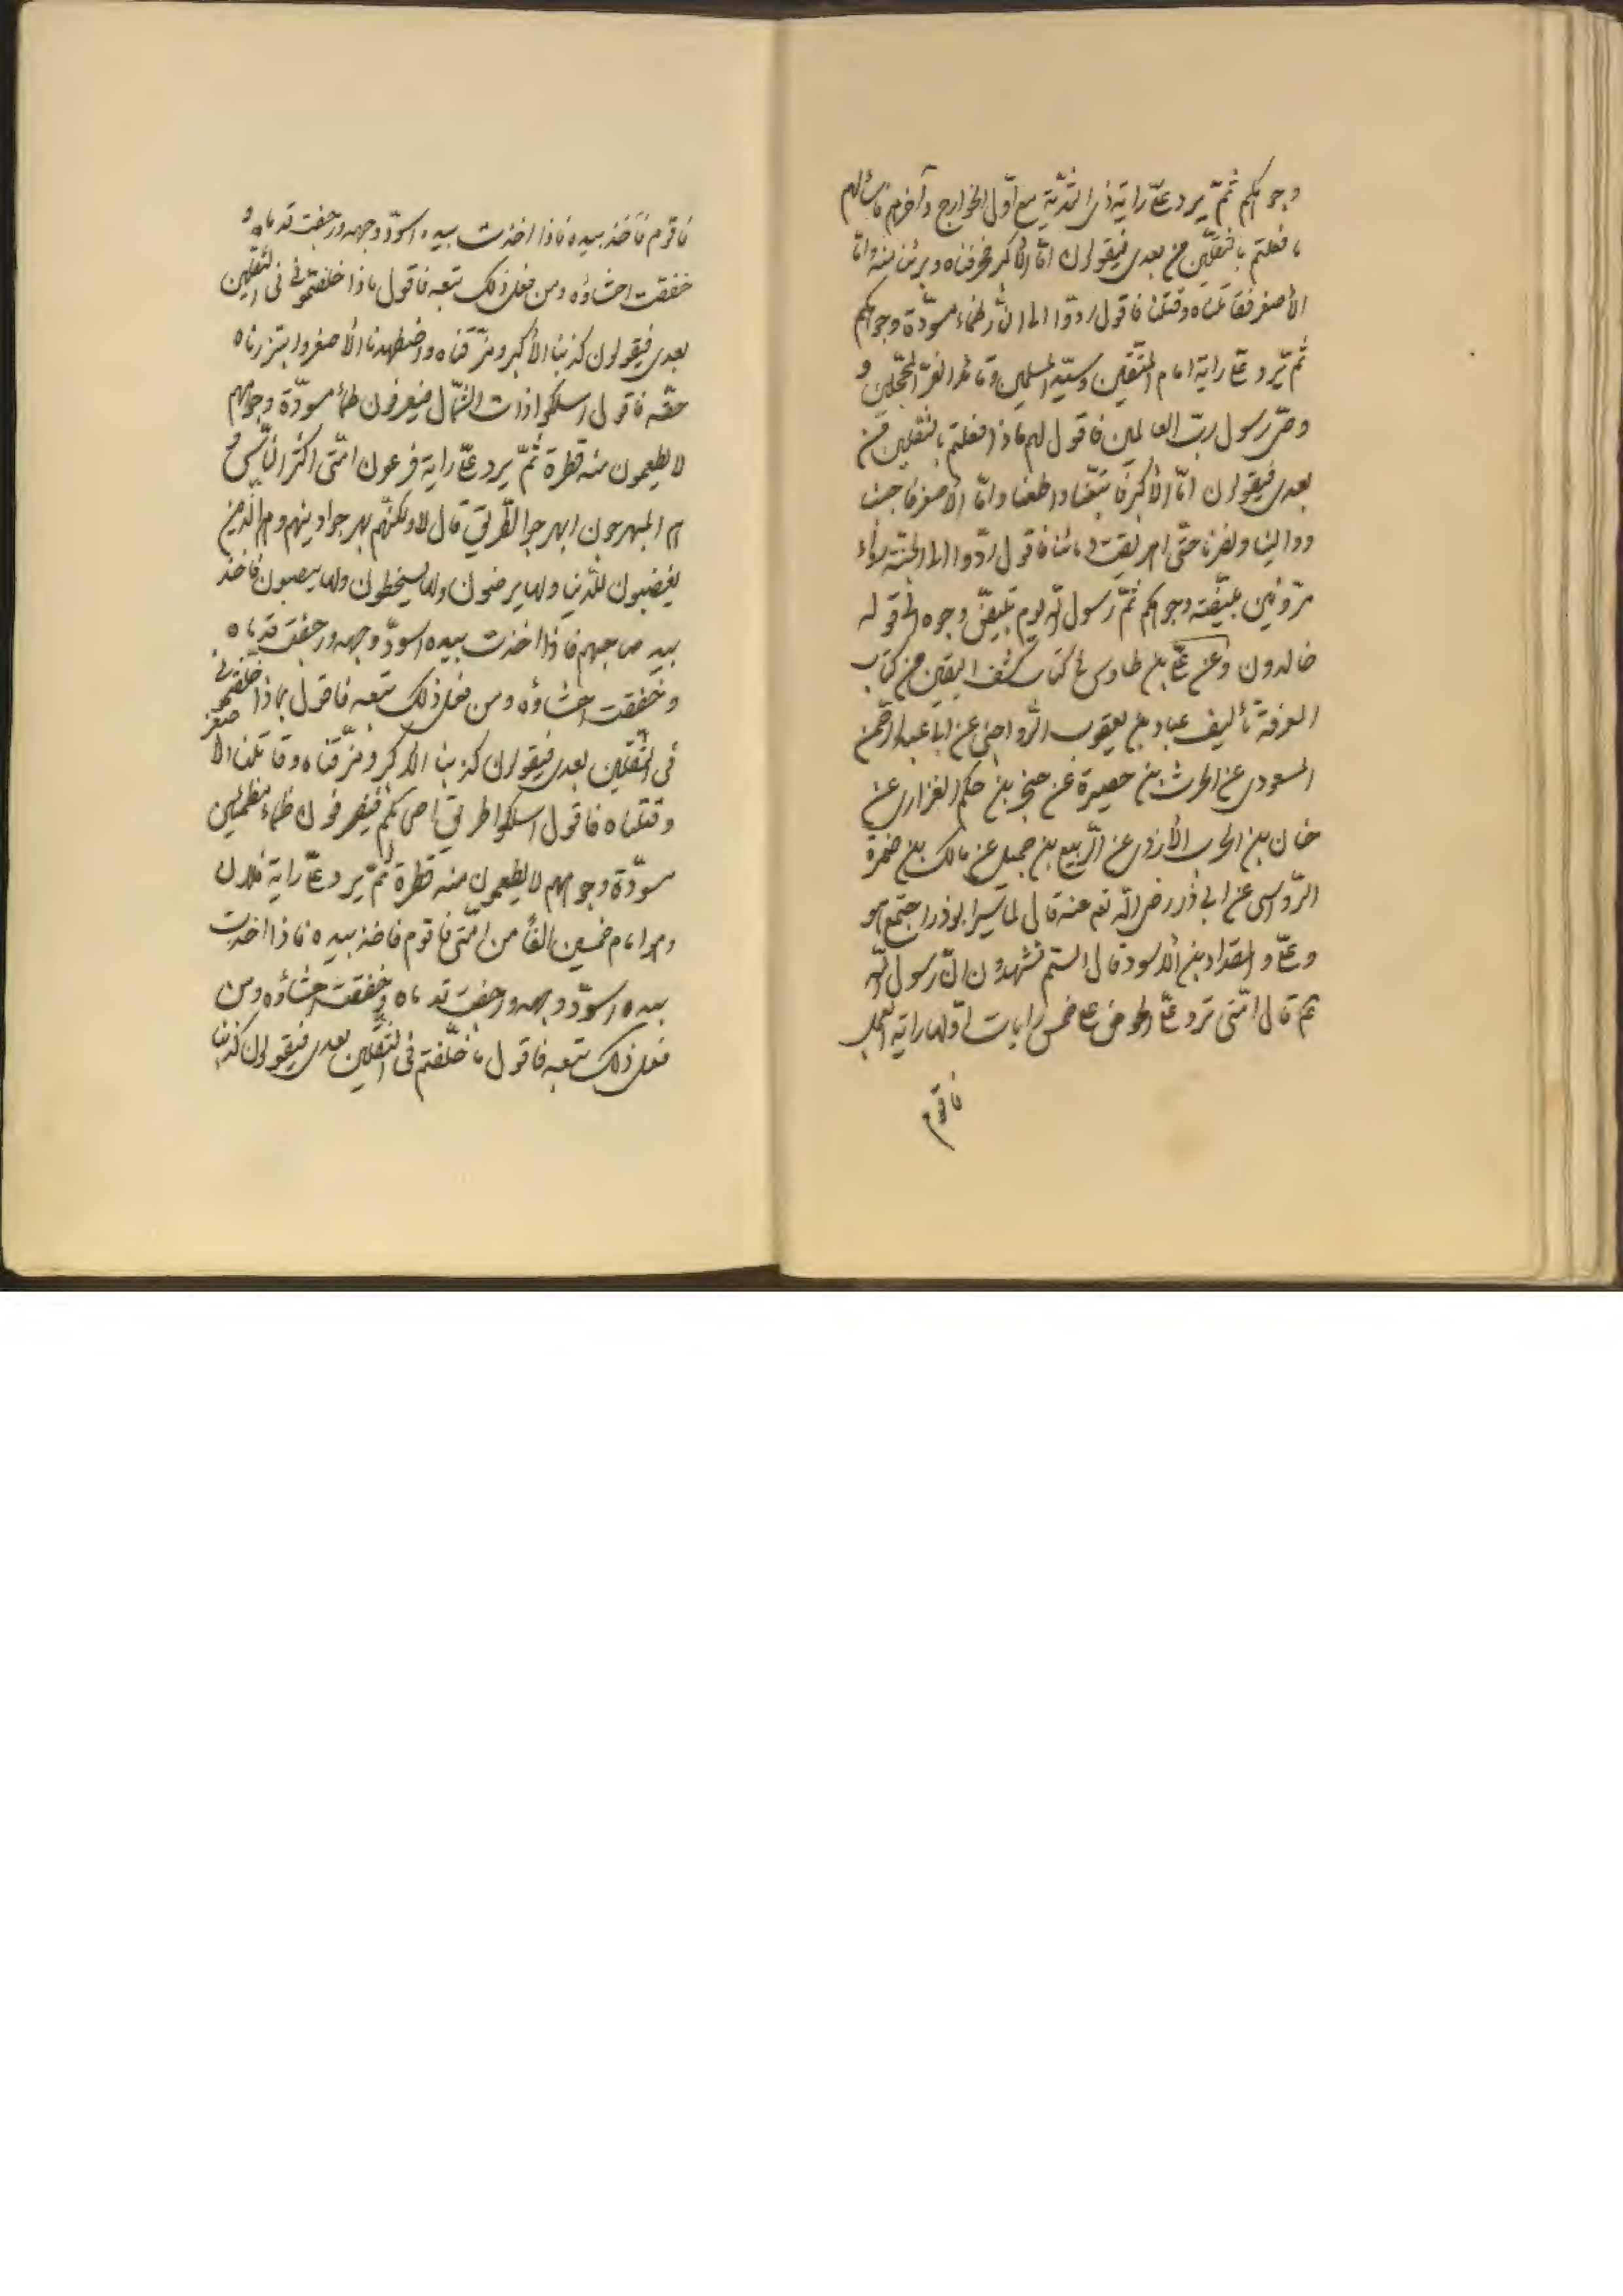 وجوهكم ثمّ يرد علىّ راية ذى الثدية مع اوّل الخوارج وآخرهم فاسألهم
ما فعلتم بالثقلين من بعدى فيقولون امّا الأكبر فمزقناه وبرئنا منه وامّا
الأصغر فقاتلناه وقتلناه فاقول ردّوا الى النّار ظماء مسودّة وجوهكم
ثمّ يرد علىّ راية امام المتّقين وسيّد المسلمين وقائد الغرّ المحجّلين و
وصىّ رسول ربّ العالمين فاقول لهم ماذا فعلتم بالثقلين من
بعدى فيقولون امّا الأكبر فاتّبعناه واطعناه وامّا الأصغر فاحببنا
ووالينا ونصرنا حتّى اهريقت دمائنا فاقول ردّوا الى الجنّة رواء
مروّيين مبيضّة وجوهكم ثمّ رسول الله يوم تبيضّ وجوه الى قوله
خالدون وعن علىّ بن طاوس فى كتاب كشف اليقين من كتاب
المعرفة تأليف عباد بن يعقوب الرّواجنى عن ابا عبد الرّحمن
المسعودى عن الحرث بن حصيرة عن صخر بن حكم الفزارى عن
حنان بن الحرب الأزدى عن الرّبيع بن جميل عن مالك بن ضمرة
الرّواسى عن ابى ذر رضى الله تعم عنه قال لما سيّر ابوذر اجتمع هو
وعلىّ والمقداد بن الأسود قال الستم تشهدون انّ رسول الله
ثم قال امّتى ترد علىّ الحوض على خمس رايات اوّلها راية العجل
فاقوم
فاقوم فآخذ بيده فاذا اخذت بيده اسودّ وجهه ورجفت قدماه و
خفقت احشاؤه ومن فعل ذلك تبعه فاقول ماذا خلفتمونى فى الثقلين
بعدى فيقولون كذبنا الأكبر ومزّقناه واضطهدنا الأصغر وابتززناه
حقّه فاقول اسلكوا ذات الشّمال فيصرفون ظماء مسودّة وجوههم
لا يطعمون منه قطرة ثمّ يرد علىّ راية فرعون امّتى اكثر النّاس و
هم المبهرجون ابهرجوا الطّريق قال لا ولكنّهم بهرجوا دينهم وهم الّذين
يغضبون للدّنيا ولها يرضون ولها يسخطون ولها ينصبون فاخذ
بيد صاحبهم فاذا اخذت بيده اسودّ وجهه ورجفت قدماه
وخفقت احشاؤه ومن فعل ذلك تبعه فاقول بماذا خلفتمونى
فى الثّقلين بعدى فيقولون كذبنا الاكبر ومزّقناه وقاتلنا الأصغر
وقتلناه فاقول اسلكوا طريق اصحابكم فيصرفون ظماء مظمئين
مسودّة وجوههم لا يطعمون منه قطرة ثمّ يرد علىّ راية فلان
وهو امام خمسين الفاً من امّتى فاقوم فاخذ بيده فاذا اخذت
بيده اسودّ وجهه ورجفت قدماه وخفقت احشاؤه ومن
فعل ذلك تبعه فاقول ما خلّفتم فى الثّقلين بعدى فيقولون كذبنا